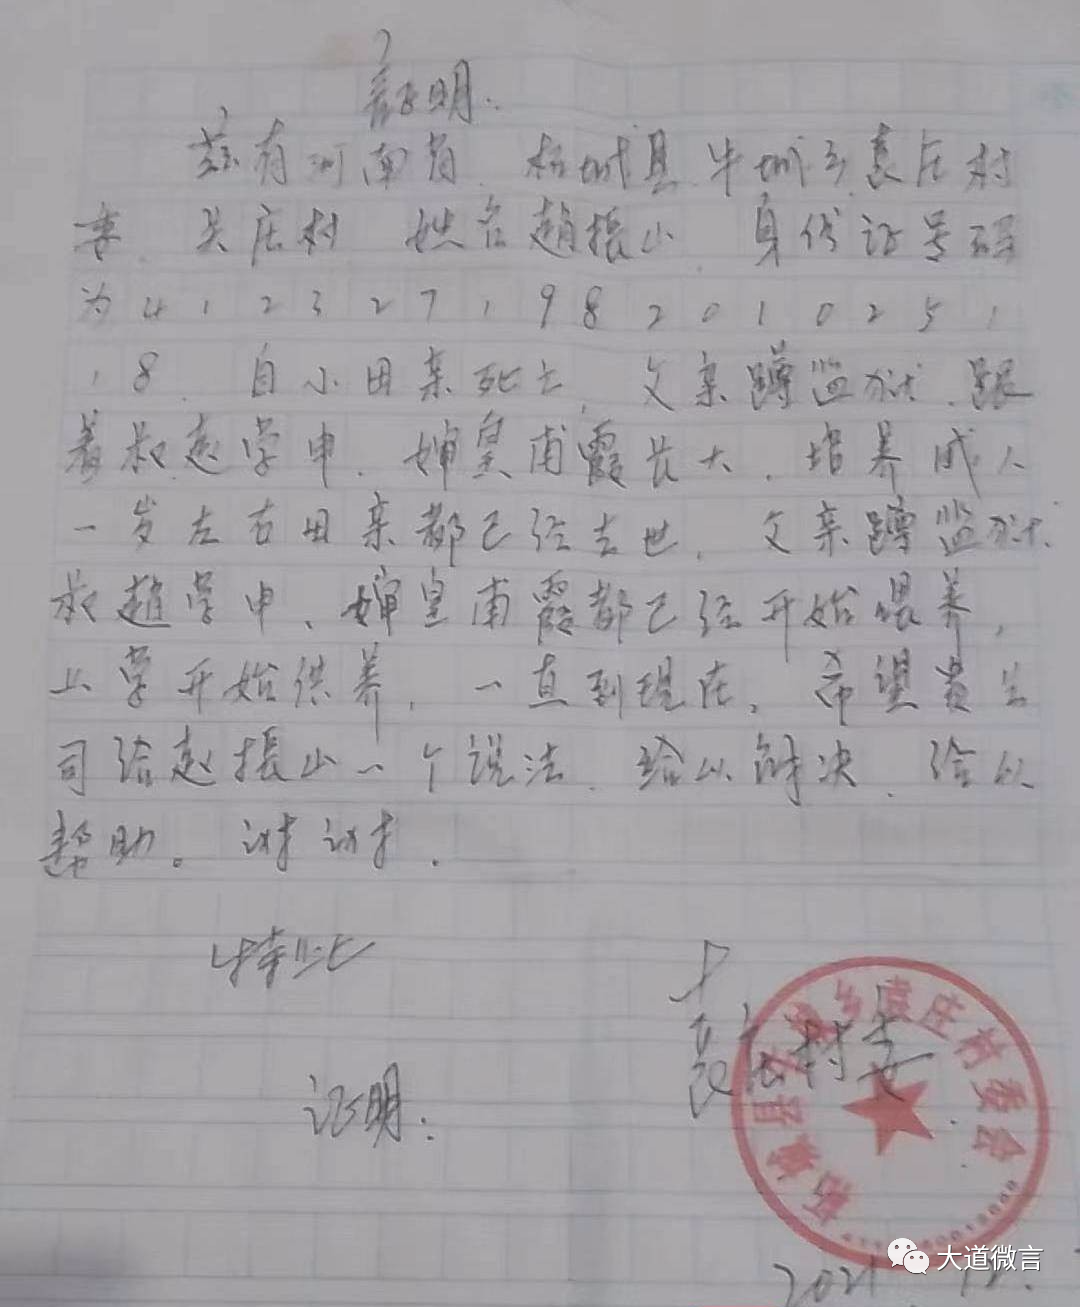 証明.
兹有河南省.柘城县.牛城乡袁庄村
委.关庄村 姓名趙振山.身份证号码
为4123271982010251
18.自小母亲死亡,父亲蹲监狱.跟
着叔赵学申.婶皇甫霞长大.培养成人
一岁左右母亲都已经去世,父亲蹲监狱.
叔趙学申、婶皇甫霞都已经开始喂养,
上学开始供养,一直到现在。希望贵公
司给赵振山一个说法.给以解决.给以
帮助。谢谢.
特此
证明:
袁庄村委
柘城县牛城乡袁庄村委员会
2021 12.
大道微言